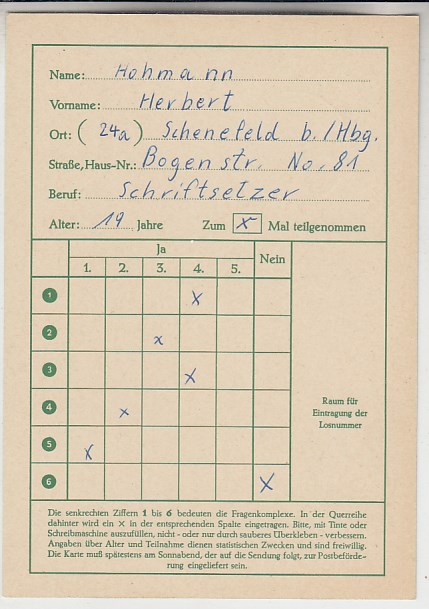 Name: Hohmann
Vorname: Herbert
Ort: (24a) Schenefeld b./Hbg.
Straße, Haus-Nr.: Bogenstr. No. 81
Beruf: Schriftsetzer
Alter: 19 Jahre Zum X Mal teilgenommen
Ja Nein
1. 2. 3. 4. 5.
1 x
2 x
3 x
4 x
5 x
6 x
Raum für
Eintragung der
Losnummer
Die senkrechten Ziffern 1 bis 6 bedeuten die Fragenkomplexe. In der Querreihe
dahinter wird ein × in der entsprechenden Spalte eingetragen. Bitte, mit Tinte oder
Schreibmaschine auszufüllen, nicht - oder nur durch sauberes Überkleben - verbessern.
Angaben über Alter und Teilnahme dienen statistischen Zwecken und sind freiwillig.
Die Karte muß spätestens am Sonnabend, der auf die Sendung folgt, zur Postbeförde-
rung eingeliefert sein.